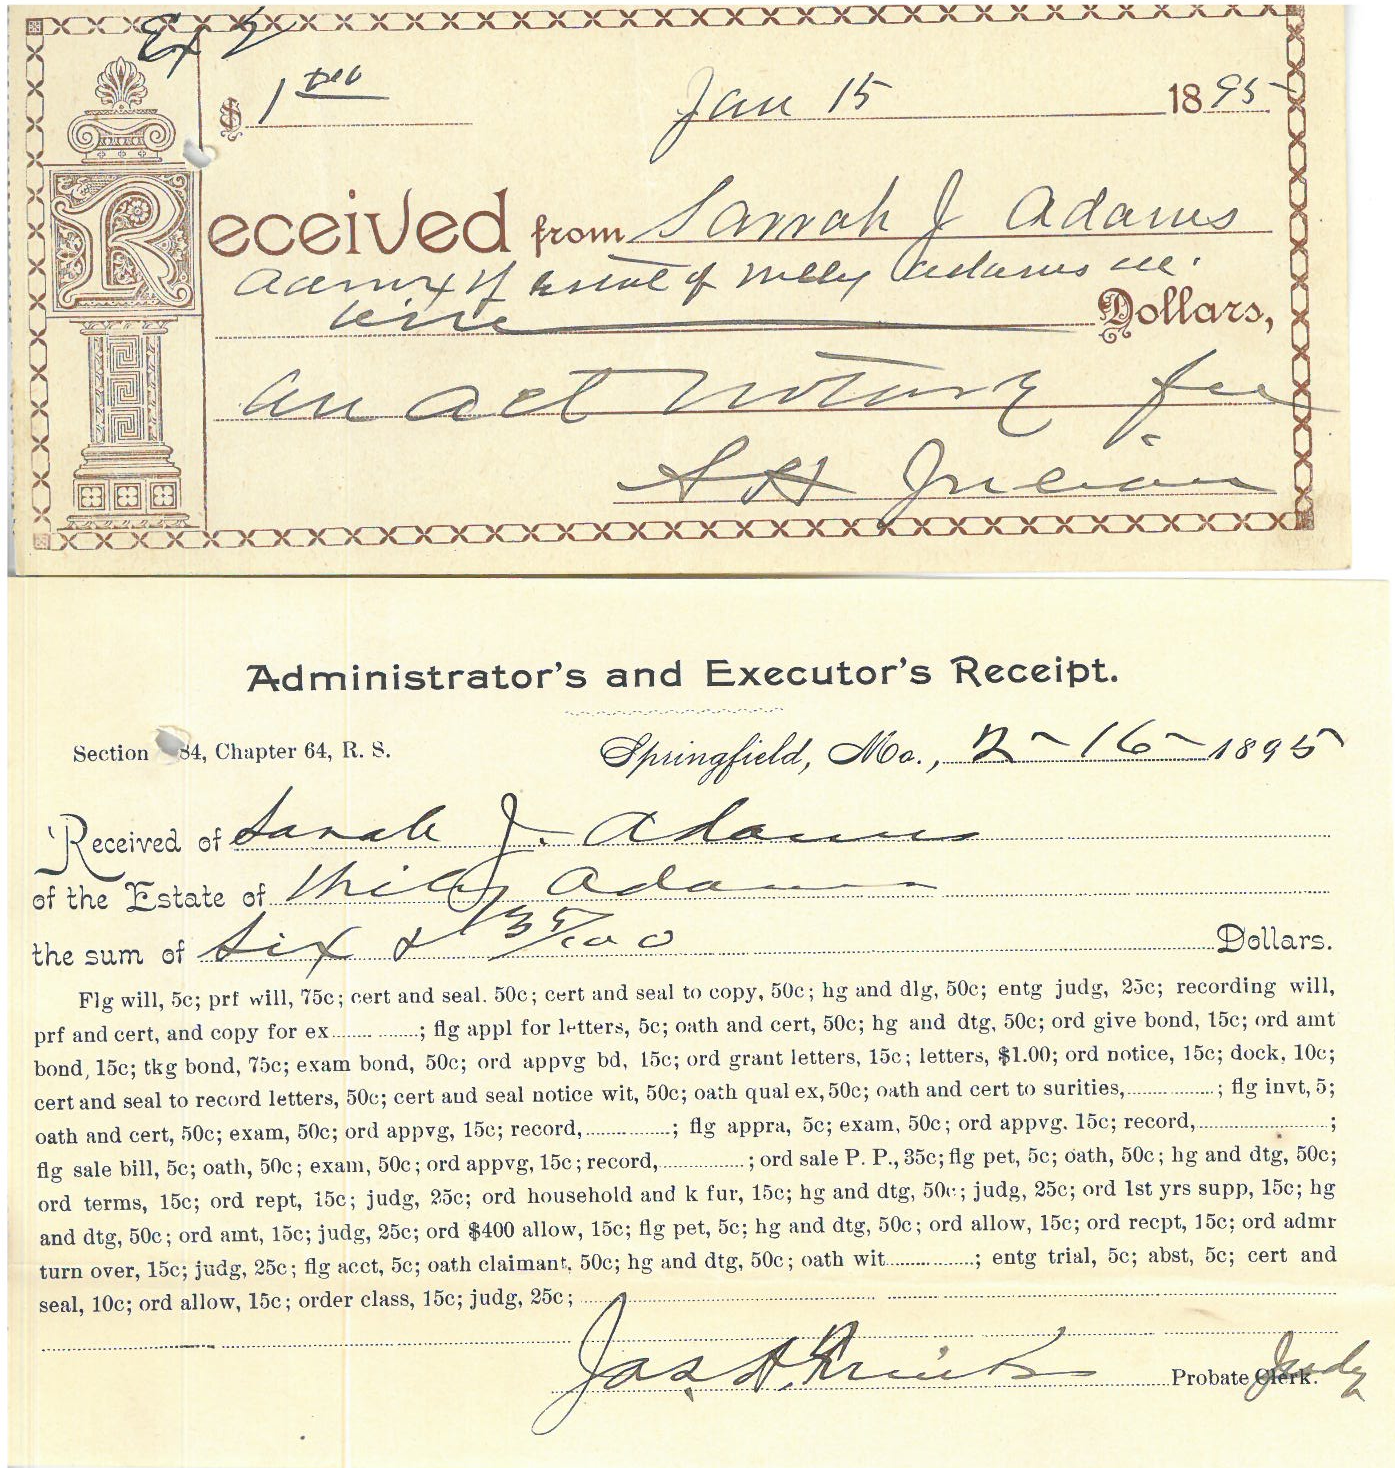 Ex 2
$ 1 00/100 Jan 15 1895
Received from Sarrah J Adams
Admrx of Estate of Wiley Adams dec.
one Dollars,
on act Notary fee
S H Julian
Administrator's and Executor's Receipt.
Section 84, Chapter 64, R. S. Springfield, Mo., 2-16-1895
Received of Sarah J. Adams
of the Estate of Wiley Adams
the sum of Six & 35/100 Dollars.
Flg will, 5c; prf will, 75c; cert and seal. 50c; cert and seal to copy, 50c; hg and dlg, 50c; entg judg, 25c; recording will,
prf and cert, and copy for ex.............; flg appl for letters, 5c; oath and cert, 50c; hg and dtg, 50c; ord give bond, 15c; ord amt
bond, 15c; tkg bond, 75c; exam bond, 50c; ord appvg bd, 15c; ord grant letters, 15c; letters, $1.00; ord notice, 15c; dock, 10c;
cert and seal to record letters, 50c; cert aud seal notice wit, 50c; oath qual ex, 50c; oath and cert to surities,...............; flg invt, 5;
oath and cert, 50c; exam, 50c; ord appvg, 15c; record,..............; flg appra, 5c; exam, 50c; ord appvg. 15c; record,......................;
flg sale bill, 5c; oath, 50c; exam, 50c; ord appvg, 15c; record,...............; ord sale P. P., 35c; flg pet, 5c; oath, 50c; hg and dtg, 50c;
ord terms, 15c; ord rept, 15c; judg, 25c; ord household and k fur, 15c; hg and dtg, 50c; judg, 25c; ord 1st yrs supp, 15c; hg
and dtg, 50c; ord amt, 15c; judg, 25c; ord $400 allow, 15c; flg pet, 5c; hg and dtg, 50c; ord allow, 15c; ord recpt, 15c; ord admr
turn over, 15c; judg, 25c; flg acct, 5c; oath claimant, 50c; hg and dtg, 50c; oath wit...............; entg trial, 5c; abst, 5c; cert and
seal, 10c; ord allow, 15c; order class, 15c; judg, 25c;
Jas. Probate Clerk. Judg